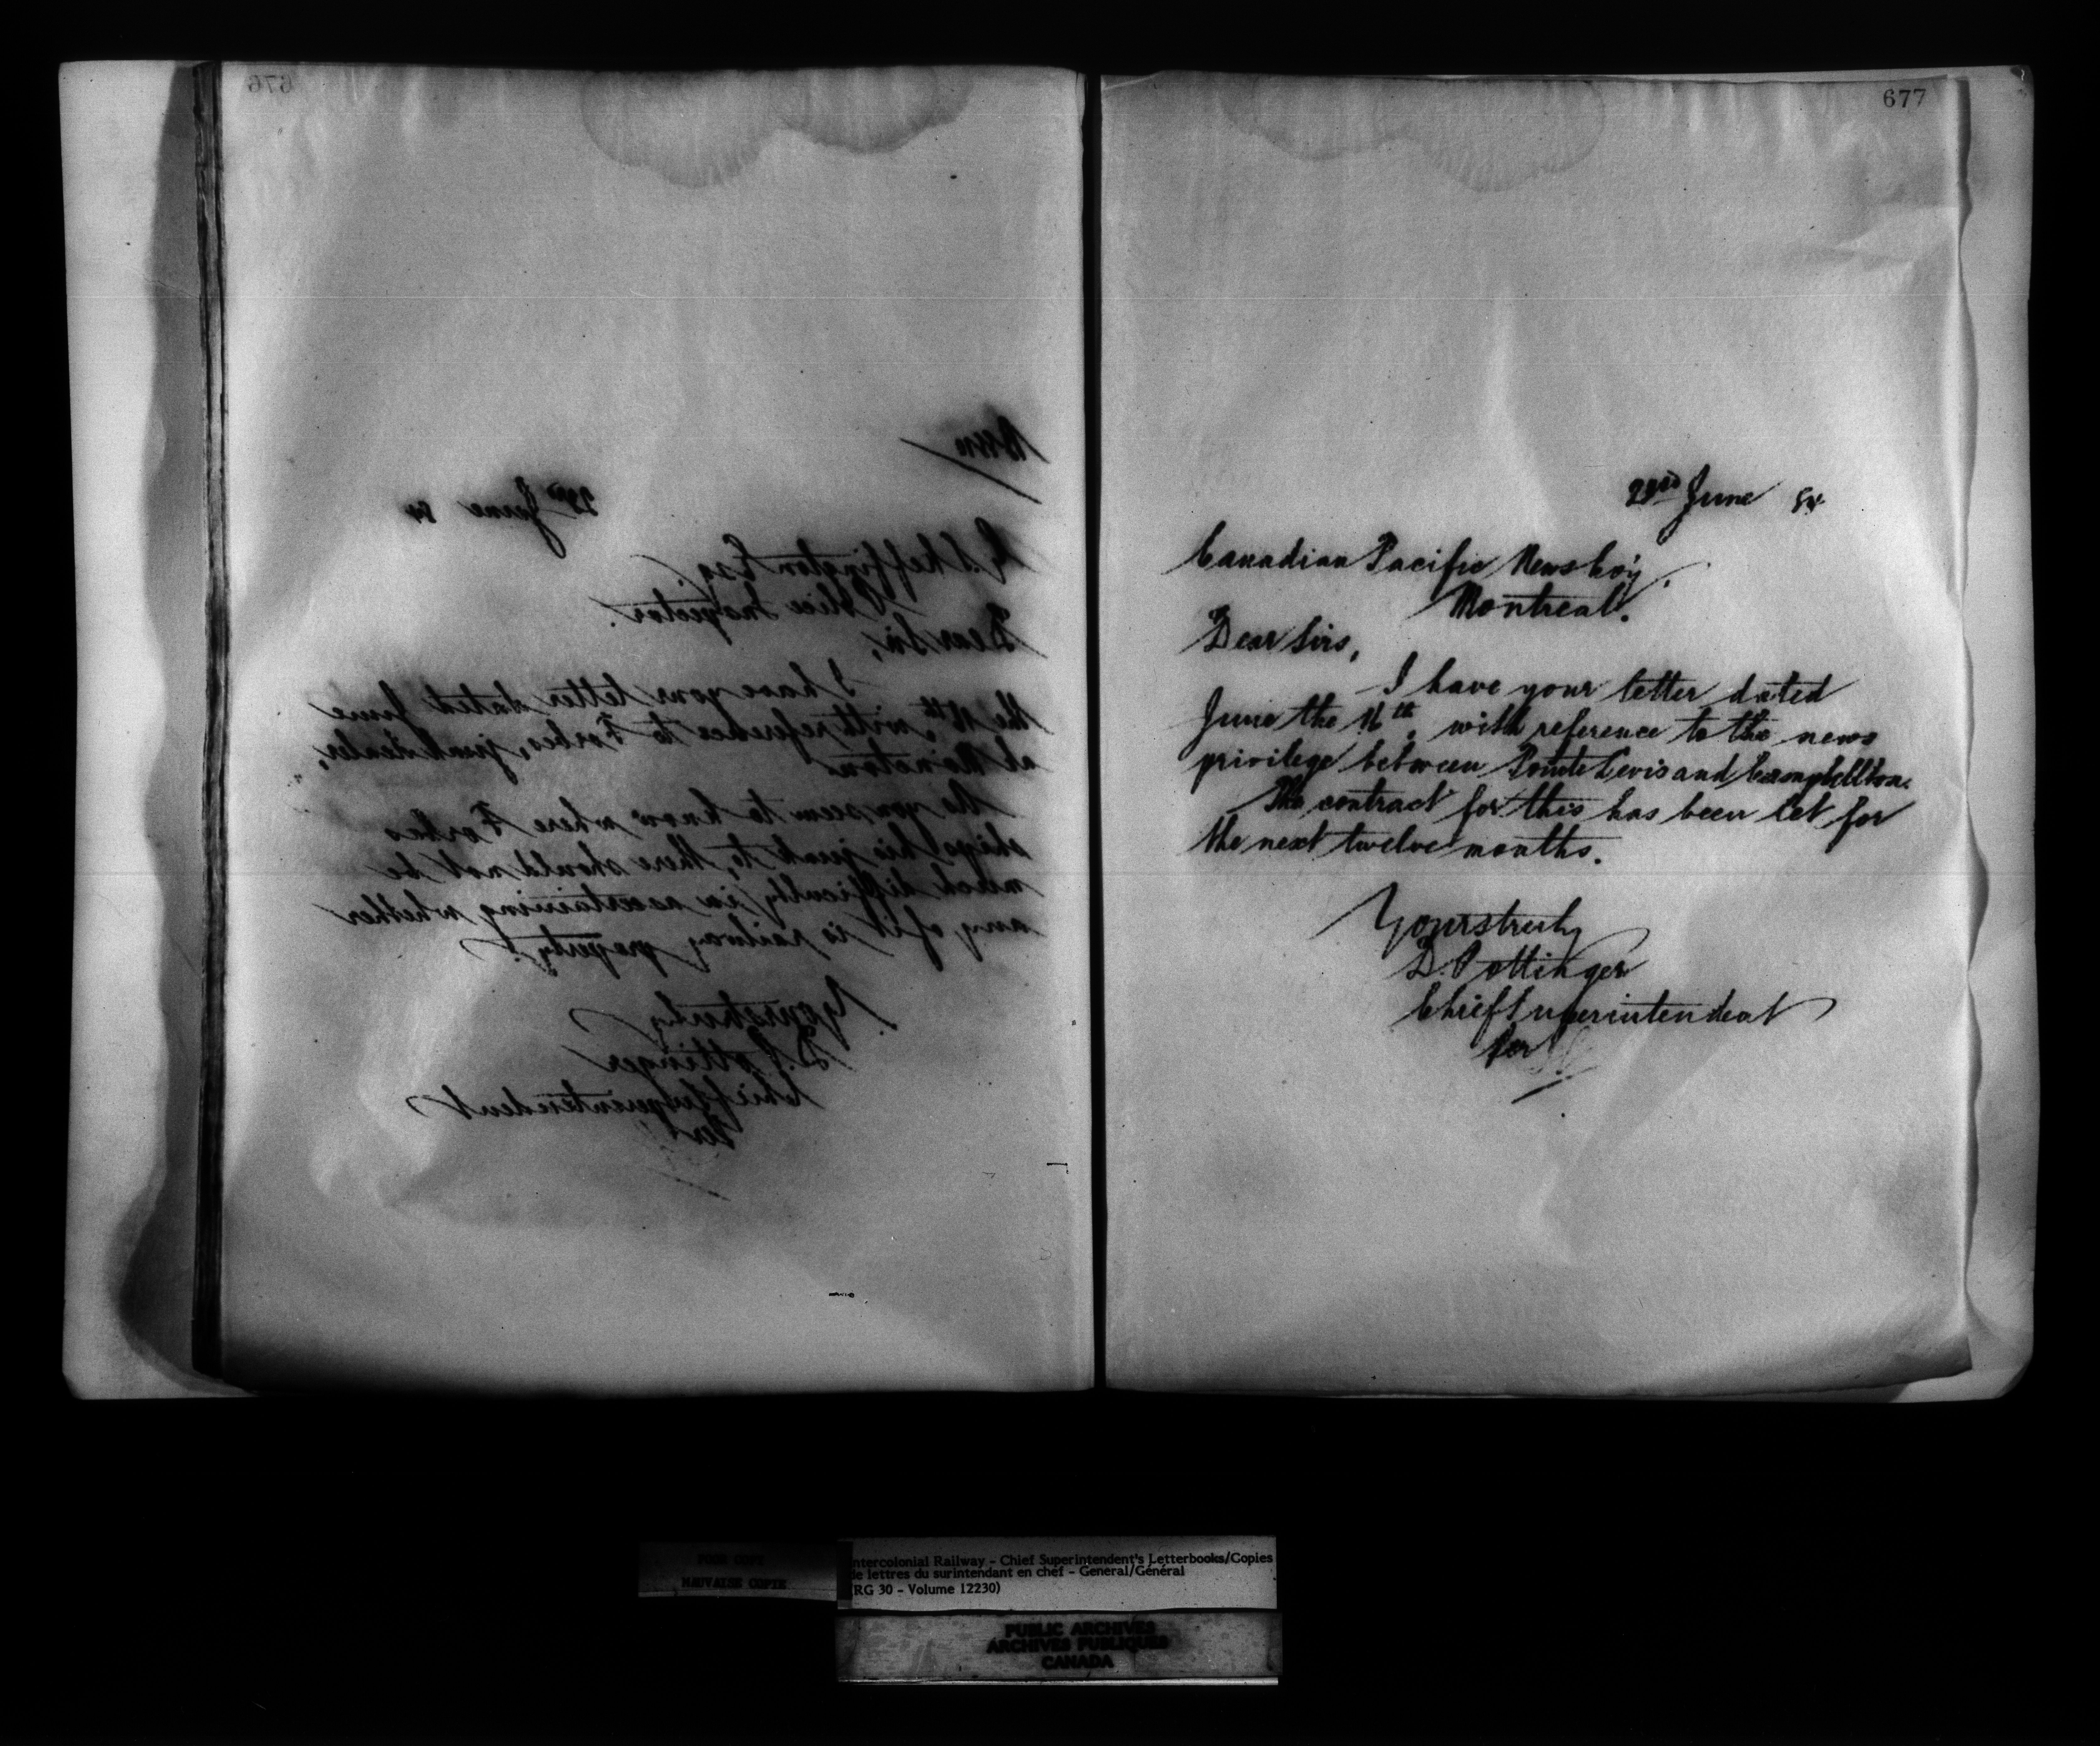 676
23rd June 84
G. Skeffington Esq.
Police Inspector.
Dear Sir,
I have your letter dated June
the 18th, with reference to Forbes, junk dealer,
at Moncton.
As you seem to know where Forbes
ships his junk to, there should not be
much difficulty in ascertaining whether
any of it is railway property.
Yours truly
D. Pottinger
Chief Superintendent
Per
677
23rd June 84
Canadian Pacific News Co'y,
Montreal.
Dear Sirs,
I have your letter dated
June the 16th, with reference to the news
privilege between Pointe Levis and Campbellton.
The contract for this has been let for
the next twelve months.
Yours truly
D. Pottinger
Chief Superintendent
Per
POOR COPY
MAUVAISE COPIE
ntercolonial Railway - Chief Superintendent's Letterbooks/Copies
de lettres du surintendant en chef - General/Général
(RG 30 - Volume 12230)
PUBLIC ARCHIVES
ARCHIVES PUBLIQUES
CANADA